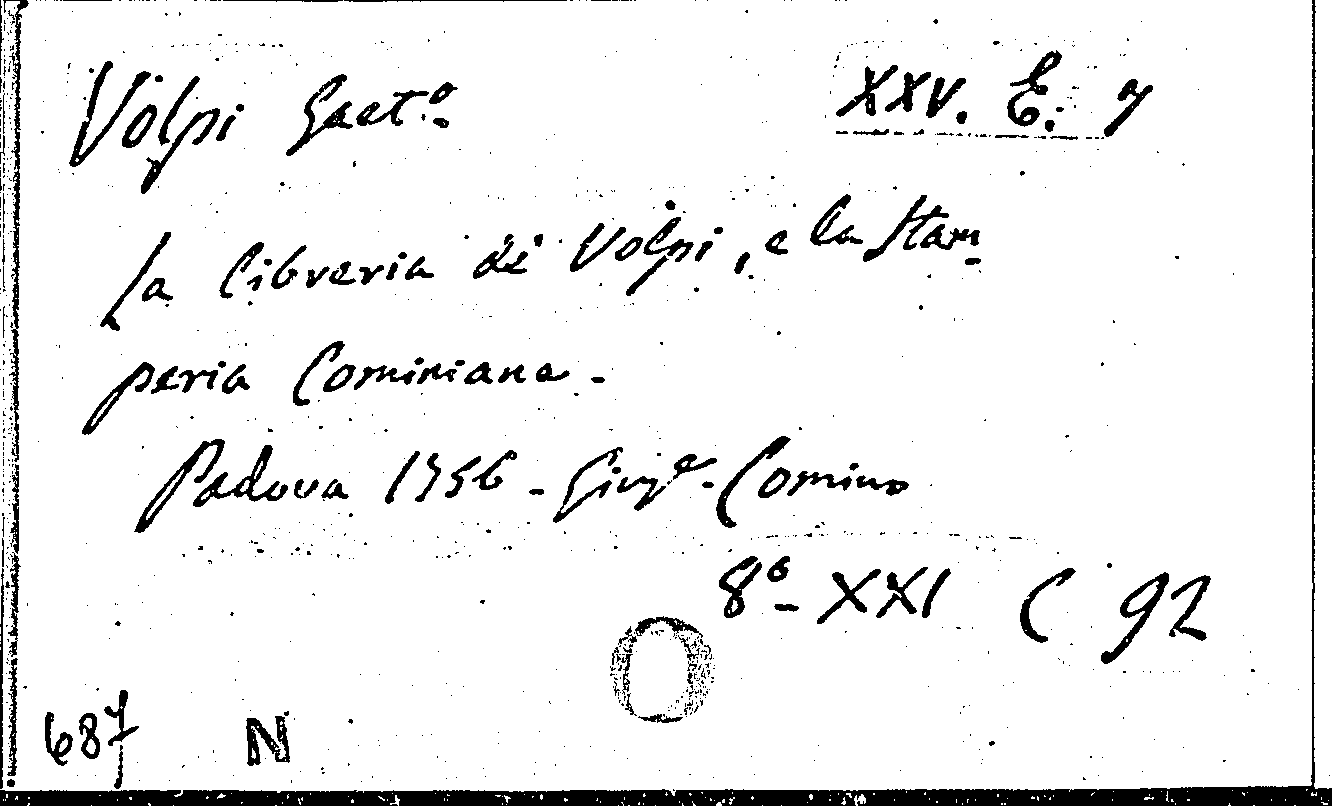 Volpi Gaet.º XXV. E. 7
La libreria de' Volpi, e la Stam-
peria Cominiana.
Padova 1756 - Giusᵉ. Comino
8º- XXI C 92
687 N